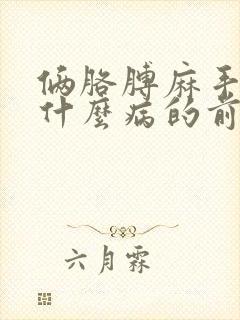 俩胳膊麻手
什麼病的前
六月霖